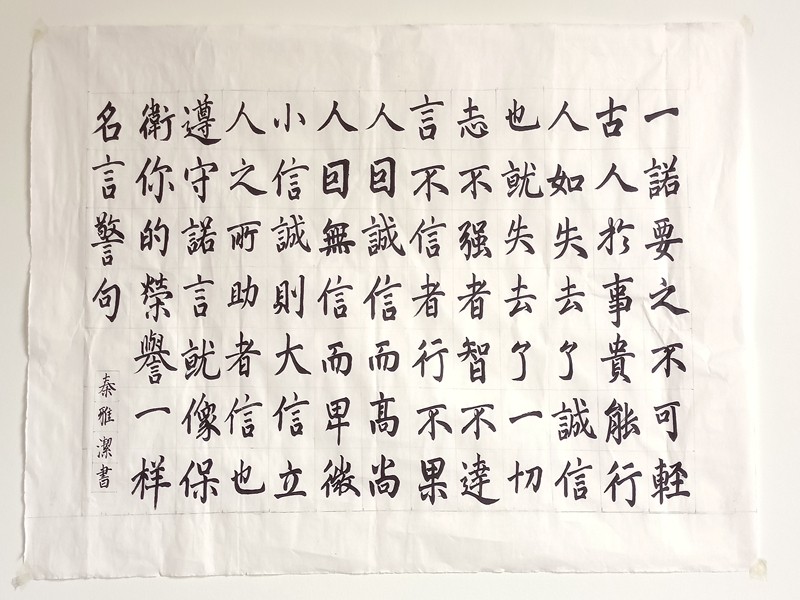 一諾要之不可輕
古人於事貴能行
人如失去了誠信
也就失去了一切
志不强者智不達
言不信者行不果
人囙誠信而高尚
人囙無信而卑微
小信誠則大信立
人之所助者信也
遵守諾言就像保
衛你的榮譽一样
名言警句
秦雅潔書